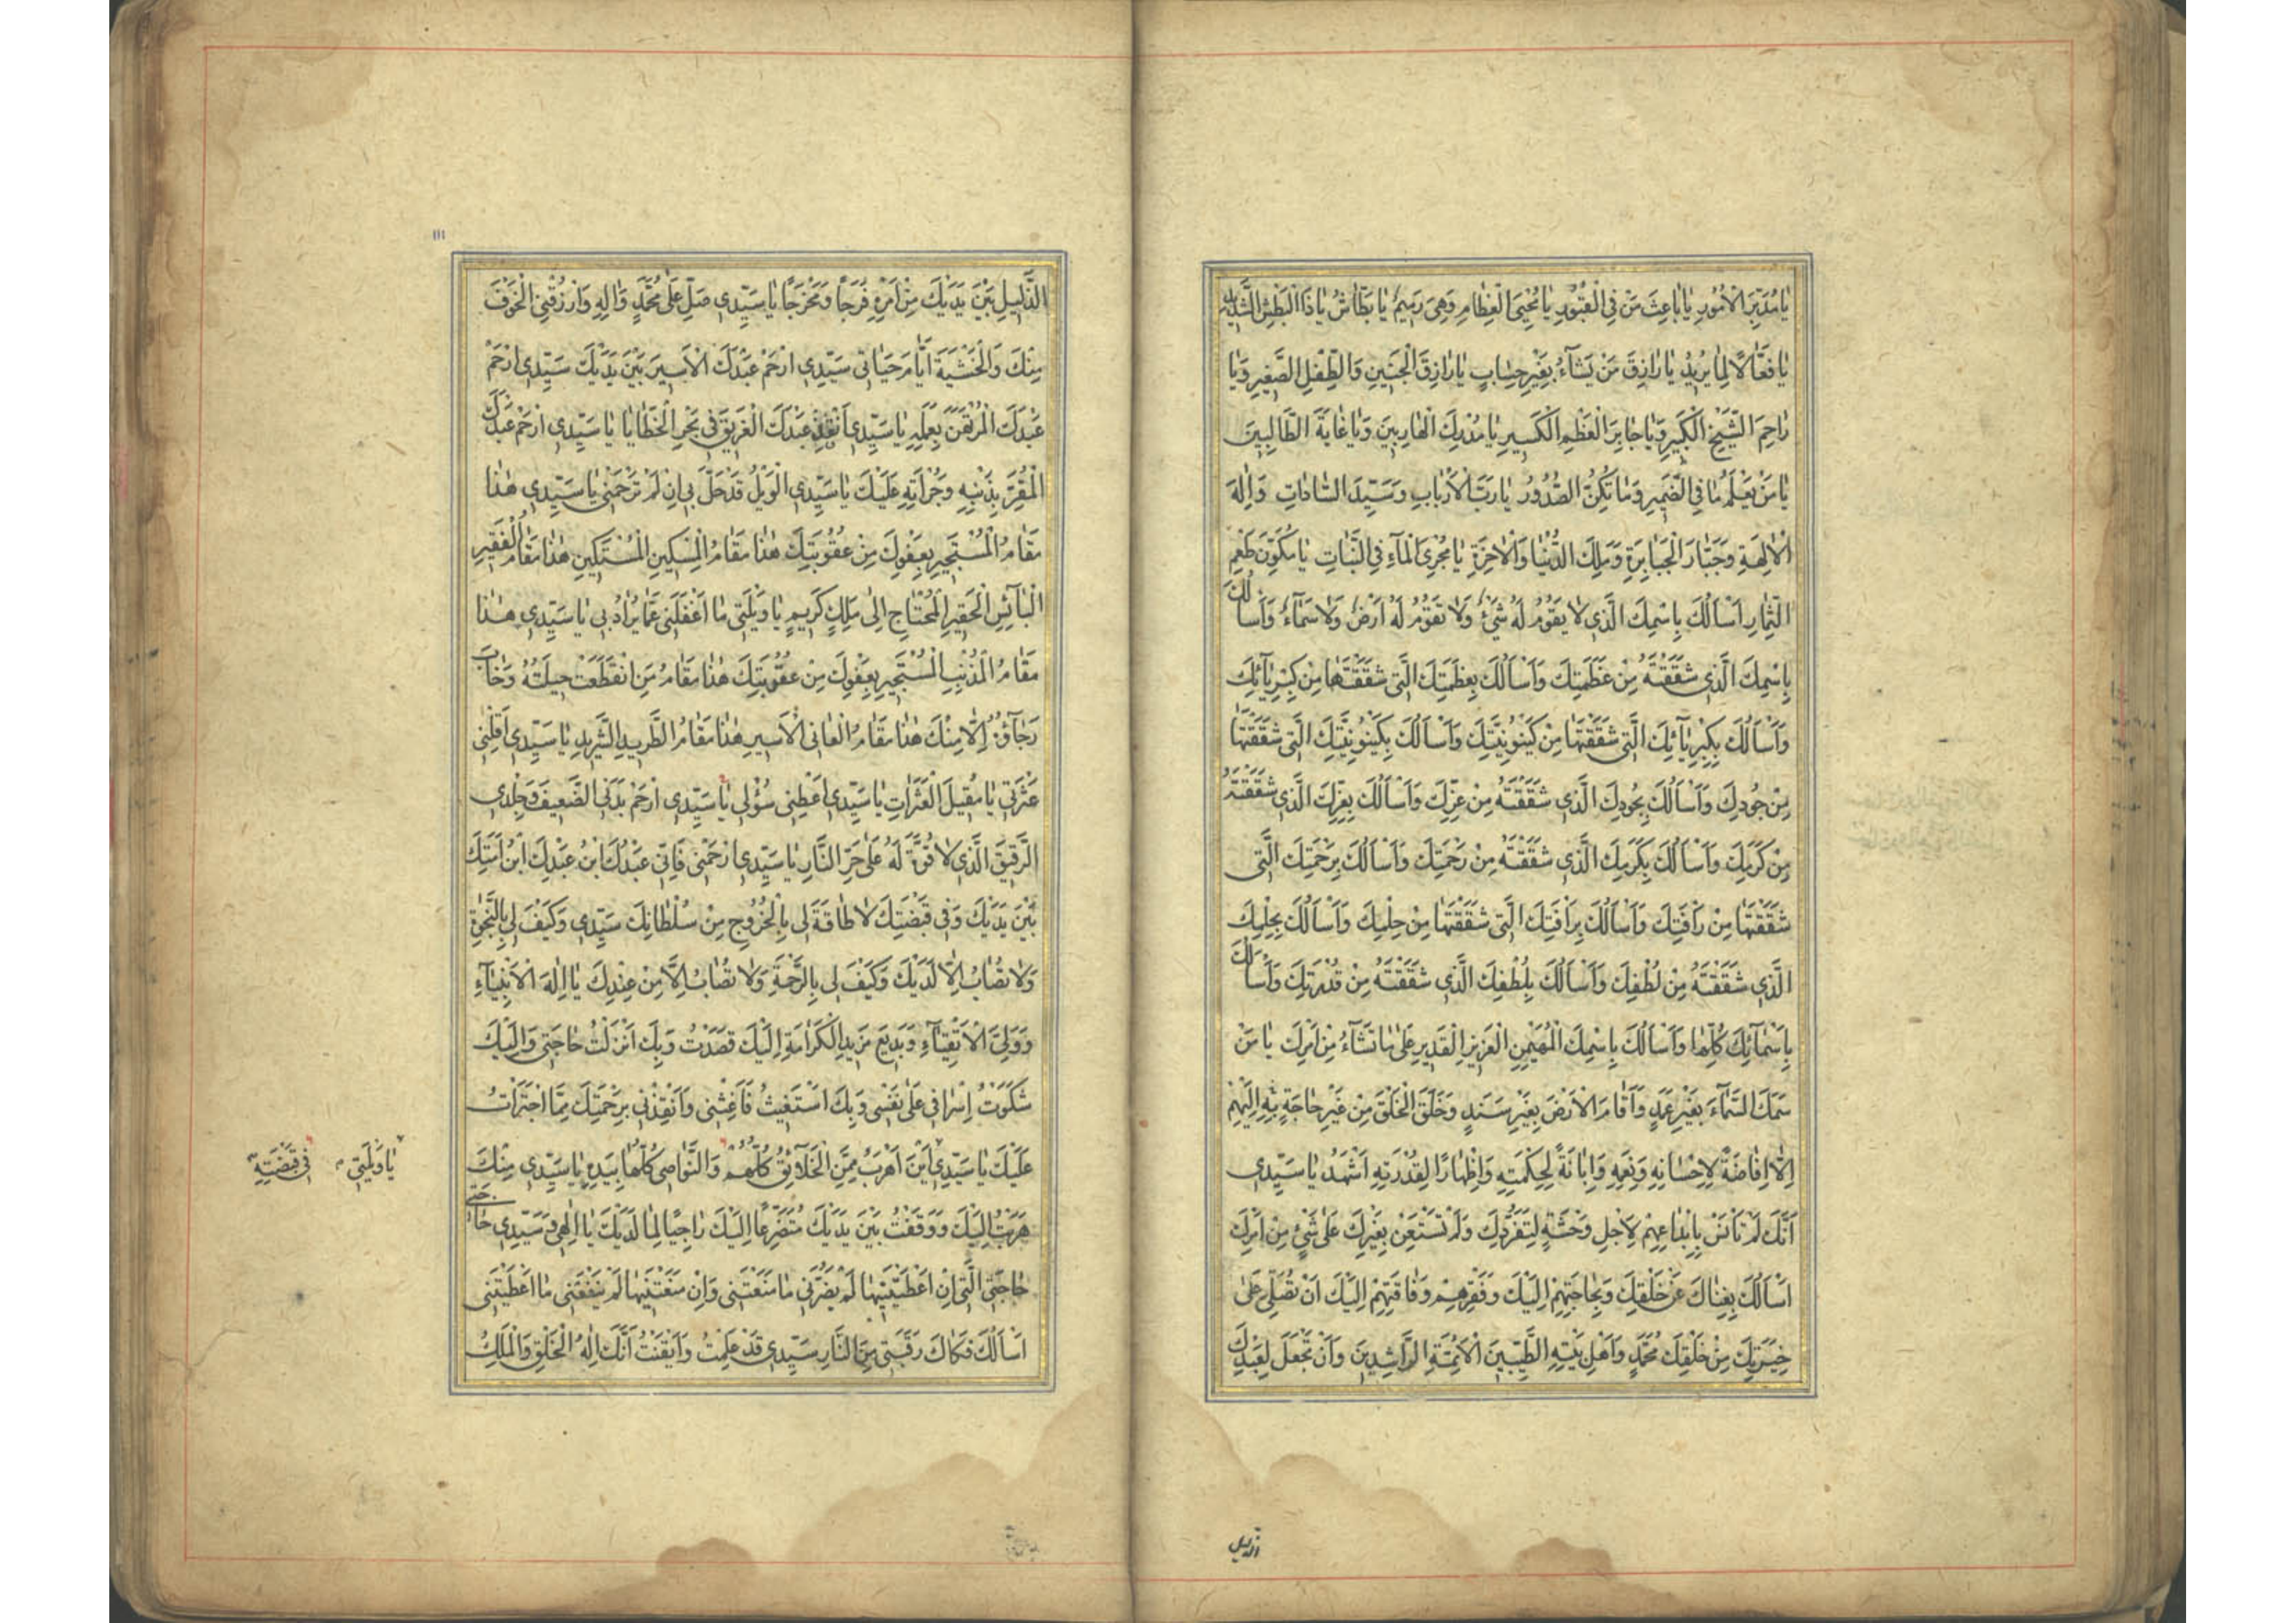 يَا مُدَبِّرَ الْاُمُورِ يَا بَاعِثَ مَنْ فِي الْقُبُورِ يَا مُحْيِيَ الْعِظَامِ وَهِيَ رَمِيمٌ يَا بَطَّاشُ يَا ذَا الْبَطْشِ الشَّدِيدِ
يَا فَعَّالًا لِمَا يُرِيدُ يَا رَازِقَ مَنْ يَشَآءُ بِغَيْرِ حِسَابٍ يَا رَازِقَ الْجَنِينِ وَالطِّفْلِ الصَّغِيرِ وَيَا
رَاحِمَ الشَّيْخِ الْكَبِيرِ وَيَا جَابِرَ الْعَظْمِ الْكَسِيرِ يَا مُدْرِكَ الْهَارِبِينَ وَيَا غَايَةَ الطَّالِبِينَ
يَا مَنْ يَعْلَمُ مَا فِي الضَّمِيرِ وَمَا تُكِنُّ الصُّدُورُ يَا رَبَّ الْاَرْبَابِ وَسَيِّدَ السَّادَاتِ وَاِلٰهَ
الْاٰلِهَةِ وَجَبَّارَ الْجَبَابِرَةِ وَمَلِكَ الدُّنْيَا وَالْاٰخِرَةِ يَا مُجْرِيَ الْمَآءِ فِي النَّبَاتِ يَا مُكَوِّنَ طَعْمِ
الثِّمَارِ اَسْاَلُكَ بِاسْمِكَ الَّذِي لَا يَقُومُ لَهُ شَيْءٌ وَلَا تَقُومُ لَهُ اَرْضٌ وَلَا سَمَآءٌ وَاَسْاَلُكَ
بِاسْمِكَ الَّذِي شَقَقْتَهُ مِنْ عَظَمَتِكَ وَاَسْاَلُكَ بِعَظَمَتِكَ الَّتِي شَقَقْتَهَا مِنْ كِبْرِيَآئِكَ
وَاَسْاَلُكَ بِكِبْرِيَآئِكَ الَّتِي شَقَقْتَهَا مِنْ كَيْنُونِيَّتِكَ وَاَسْاَلُكَ بِكَيْنُونِيَّتِكَ الَّتِي شَقَقْتَهَا
مِنْ جُودِكَ وَاَسْاَلُكَ بِجُودِكَ الَّذِي شَقَقْتَهُ مِنْ عِزِّكَ وَاَسْاَلُكَ بِعِزِّكَ الَّذِي شَقَقْتَهُ
مِنْ كَرَمِكَ وَاَسْاَلُكَ بِكَرَمِكَ الَّذِي شَقَقْتَهُ مِنْ رَحْمَتِكَ وَاَسْاَلُكَ بِرَحْمَتِكَ الَّتِي
شَقَقْتَهَا مِنْ رَاْفَتِكَ وَاَسْاَلُكَ بِرَاْفَتِكَ الَّتِي شَقَقْتَهَا مِنْ حِلْمِكَ وَاَسْاَلُكَ بِحِلْمِكَ
الَّذِي شَقَقْتَهُ مِنْ لُطْفِكَ وَاَسْاَلُكَ بِلُطْفِكَ الَّذِي شَقَقْتَهُ مِنْ قُدْرَتِكَ وَاَسْاَلُكَ
بِاَسْمَآئِكَ كُلِّهَا وَاَسْاَلُكَ بِاسْمِكَ الْمُهَيْمِنِ الْعَزِيزِ الْقَدِيرِ عَلٰى مَا تَشَآءُ مِنْ اَمْرِكَ يَا مَنْ
سَمَكَ السَّمَآءَ بِغَيْرِ عَمَدٍ وَاَقَامَ الْاَرْضَ بِغَيْرِ سَنَدٍ وَخَلَقَ الْخَلْقَ مِنْ غَيْرِ حَاجَةٍ بِهِ اِلَيْهِمْ
اِلَّا اِفَاضَةً لِاِحْسَانِهِ وَنِعَمِهِ وَاِبَانَةً لِحِكْمَتِهِ وَاِظْهَارًا لِقُدْرَتِهِ اَشْهَدُ يَا سَيِّدِي
اَنَّكَ لَمْ تَاْنَسْ بِاِبْدَاعِهِمْ لِاَجْلِ وَحْشَةٍ لِتَفَرُّدِكَ وَلَمْ تَسْتَعِنْ بِغَيْرِكَ عَلٰى شَيْءٍ مِنْ اَمْرِكَ
اَسْاَلُكَ بِغِنَاكَ عَنْ خَلْقِكَ وَبِحَاجَتِهِمْ اِلَيْكَ وَفَقْرِهِمْ وَفَاقَتِهِمْ اِلَيْكَ اَنْ تُصَلِّيَ عَلٰى
خِيَرَتِكَ مِنْ خَلْقِكَ مُحَمَّدٍ وَاَهْلِ بَيْتِهِ الطَّيِّبِينَ الْاَئِمَّةِ الرَّاشِدِينَ وَاَنْ تَجْعَلَ لِعَبْدِكَ
الذلیل
١١١
الذَّلِيلِ بَيْنَ يَدَيْكَ مِنْ اَمْرِهِ فَرَجًا وَمَخْرَجًا يَا سَيِّدِي صَلِّ عَلٰى مُحَمَّدٍ وَاٰلِهِ وَارْزُقْنِي الْخَوْفَ
مِنْكَ وَالْخَشْيَةَ اَيَّامَ حَيَاتِي سَيِّدِي ارْحَمْ عَبْدَكَ الْاَسِيرَ بَيْنَ يَدَيْكَ سَيِّدِي ارْحَمْ
عَبْدَكَ الْمُرْتَهَنَ بِعَمَلِهِ يَا سَيِّدِي اَنْقِذْ عَبْدَكَ الْغَرِيقَ فِي بَحْرِ الْخَطَايَا يَا سَيِّدِي ارْحَمْ عَبْدَكَ
الْمُقِرَّ بِذَنْبِهِ وَجُرْاَتِهِ عَلَيْكَ يَا سَيِّدِي الْوَيْلُ قَدْ حَلَّ بِي اِنْ لَمْ تَرْحَمْنِي يَا سَيِّدِي هٰذَا
مَقَامُ الْمُسْتَجِيرِ بِعَفْوِكَ مِنْ عُقُوبَتِكَ هٰذَا مَقَامُ الْمِسْكِينِ الْمُسْتَكِينِ هٰذَا مَقَامُ الْفَقِيرِ
الْبَآئِسِ الْحَقِيرِ الْمُحْتَاجِ اِلٰى مَلِكٍ كَرِيمٍ يَا وَيْلَتِي مَا اَغْفَلَنِي عَمَّا يُرَادُ بِي يَا سَيِّدِي هٰذَا
مَقَامُ الْمُذْنِبِ الْمُسْتَجِيرِ بِعَفْوِكَ مِنْ عُقُوبَتِكَ هٰذَا مَقَامُ مَنِ انْقَطَعَتْ حِيلَتُهُ وَخَابَ
رَجَآؤُهُ اِلَّا مِنْكَ هٰذَا مَقَامُ الْعَانِي الْاَسِيرِ هٰذَا مَقَامُ الطَّرِيدِ الشَّرِيدِ يَا سَيِّدِي اَقِلْنِي
عَثْرَتِي يَا مُقِيلَ الْعَثَرَاتِ يَا سَيِّدِي اَعْطِنِي سُؤْلِي يَا سَيِّدِي ارْحَمْ بَدَنِي الضَّعِيفَ وَجِلْدِي
الرَّقِيقَ الَّذِي لَا قُوَّةَ لَهُ عَلٰى حَرِّ النَّارِ يَا سَيِّدِي ارْحَمْنِي فَاِنِّي عَبْدُكَ ابْنُ عَبْدِكَ ابْنُ اَمَتِكَ
بَيْنَ يَدَيْكَ وَفِي قَبْضَتِكَ لَا طَاقَةَ لِي بِالْخُرُوجِ مِنْ سُلْطَانِكَ سَيِّدِي وَكَيْفَ لِي بِالنَّجٰوةِ
وَلَا تُصَابُ اِلَّا لَدَيْكَ وَكَيْفَ لِي بِالرَّحْمَةِ وَلَا تُصَابُ اِلَّا مِنْ عِنْدِكَ يَا اِلٰهَ الْاَنْبِيَآءِ
وَوَلِيَّ الْاَتْقِيَآءِ وَبَدِيعَ مَزِيدِ الْكَرَامَةِ اِلَيْكَ قَصَدْتُ وَبِكَ اَنْزَلْتُ حَاجَتِي وَاِلَيْكَ
شَكَوْتُ اِسْرَافِي عَلٰى نَفْسِي وَبِكَ اَسْتَغِيثُ فَاَغِثْنِي وَاَنْقِذْنِي بِرَحْمَتِكَ مِمَّا اجْتَرَاْتُ
عَلَيْكَ يَا سَيِّدِي اَيْنَ اَهْرَبُ مِمَّنِ الْخَلَآئِقُ كُلُّهُمْ وَالنَّوَاصِي كُلُّهَا بِيَدِهِ يَا سَيِّدِي مِنْكَ
هَرَبْتُ اِلَيْكَ وَوَقَفْتُ بَيْنَ يَدَيْكَ مُتَضَرِّعًا اِلَيْكَ رَاجِيًا لِمَا لَدَيْكَ يَا اِلٰهِي وَسَيِّدِي حَاجَتِي
حَاجَتِيَ الَّتِي اِنْ اَعْطَيْتَنِيهَا لَمْ يَضُرَّنِي مَا مَنَعْتَنِي وَاِنْ مَنَعْتَنِيهَا لَمْ يَنْفَعْنِي مَا اَعْطَيْتَنِي
اَسْاَلُكَ فَكَاكَ رَقَبَتِي مِنَ النَّارِ سَيِّدِي قَدْ عَلِمْتُ وَاَيْقَنْتُ اَنَّكَ اِلٰهُ الْخَلْقِ وَالْمَلِكُ
يَا وَيْلَتِي فِي قَبْضَتِهِ